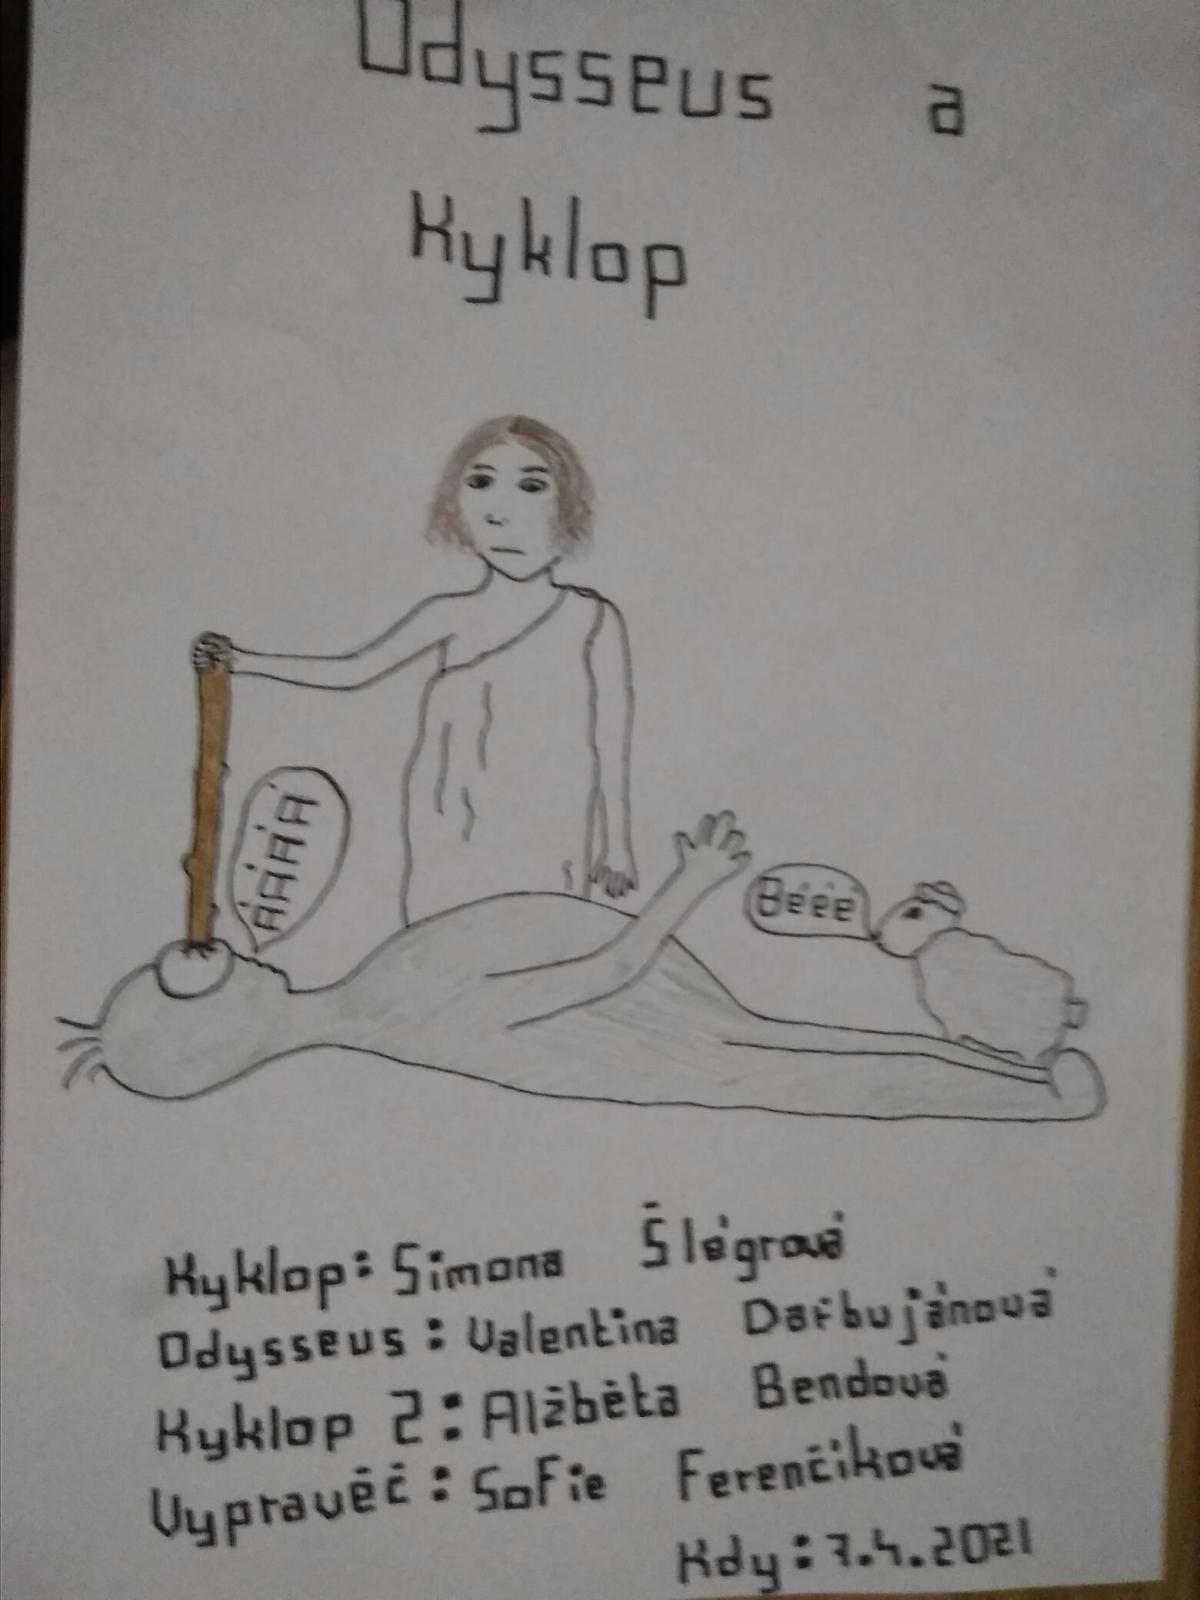 Odysseus a
Kyklop
ÁÁÁÁ
Bééé
Kyklop: Simona Šlégrová
Odysseus: Valentina Darbujánová
Kyklop 2: Alžběta Bendová
Vypravěč: Sofie Ferenčíková
Kdy: 7.4.2021